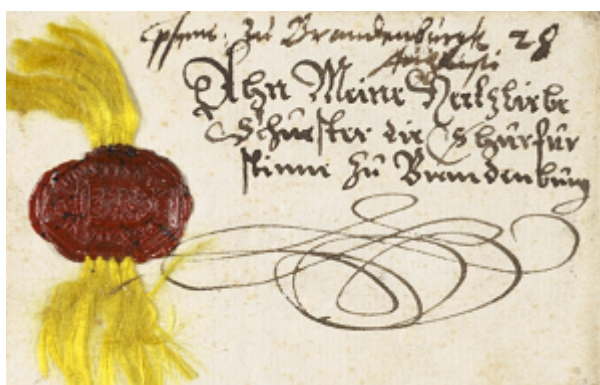 zu Brandenburgk 28
Augusti
Ahn Meine Hertzliebe
Schuester die Churfur
stinne zu Brandenburg